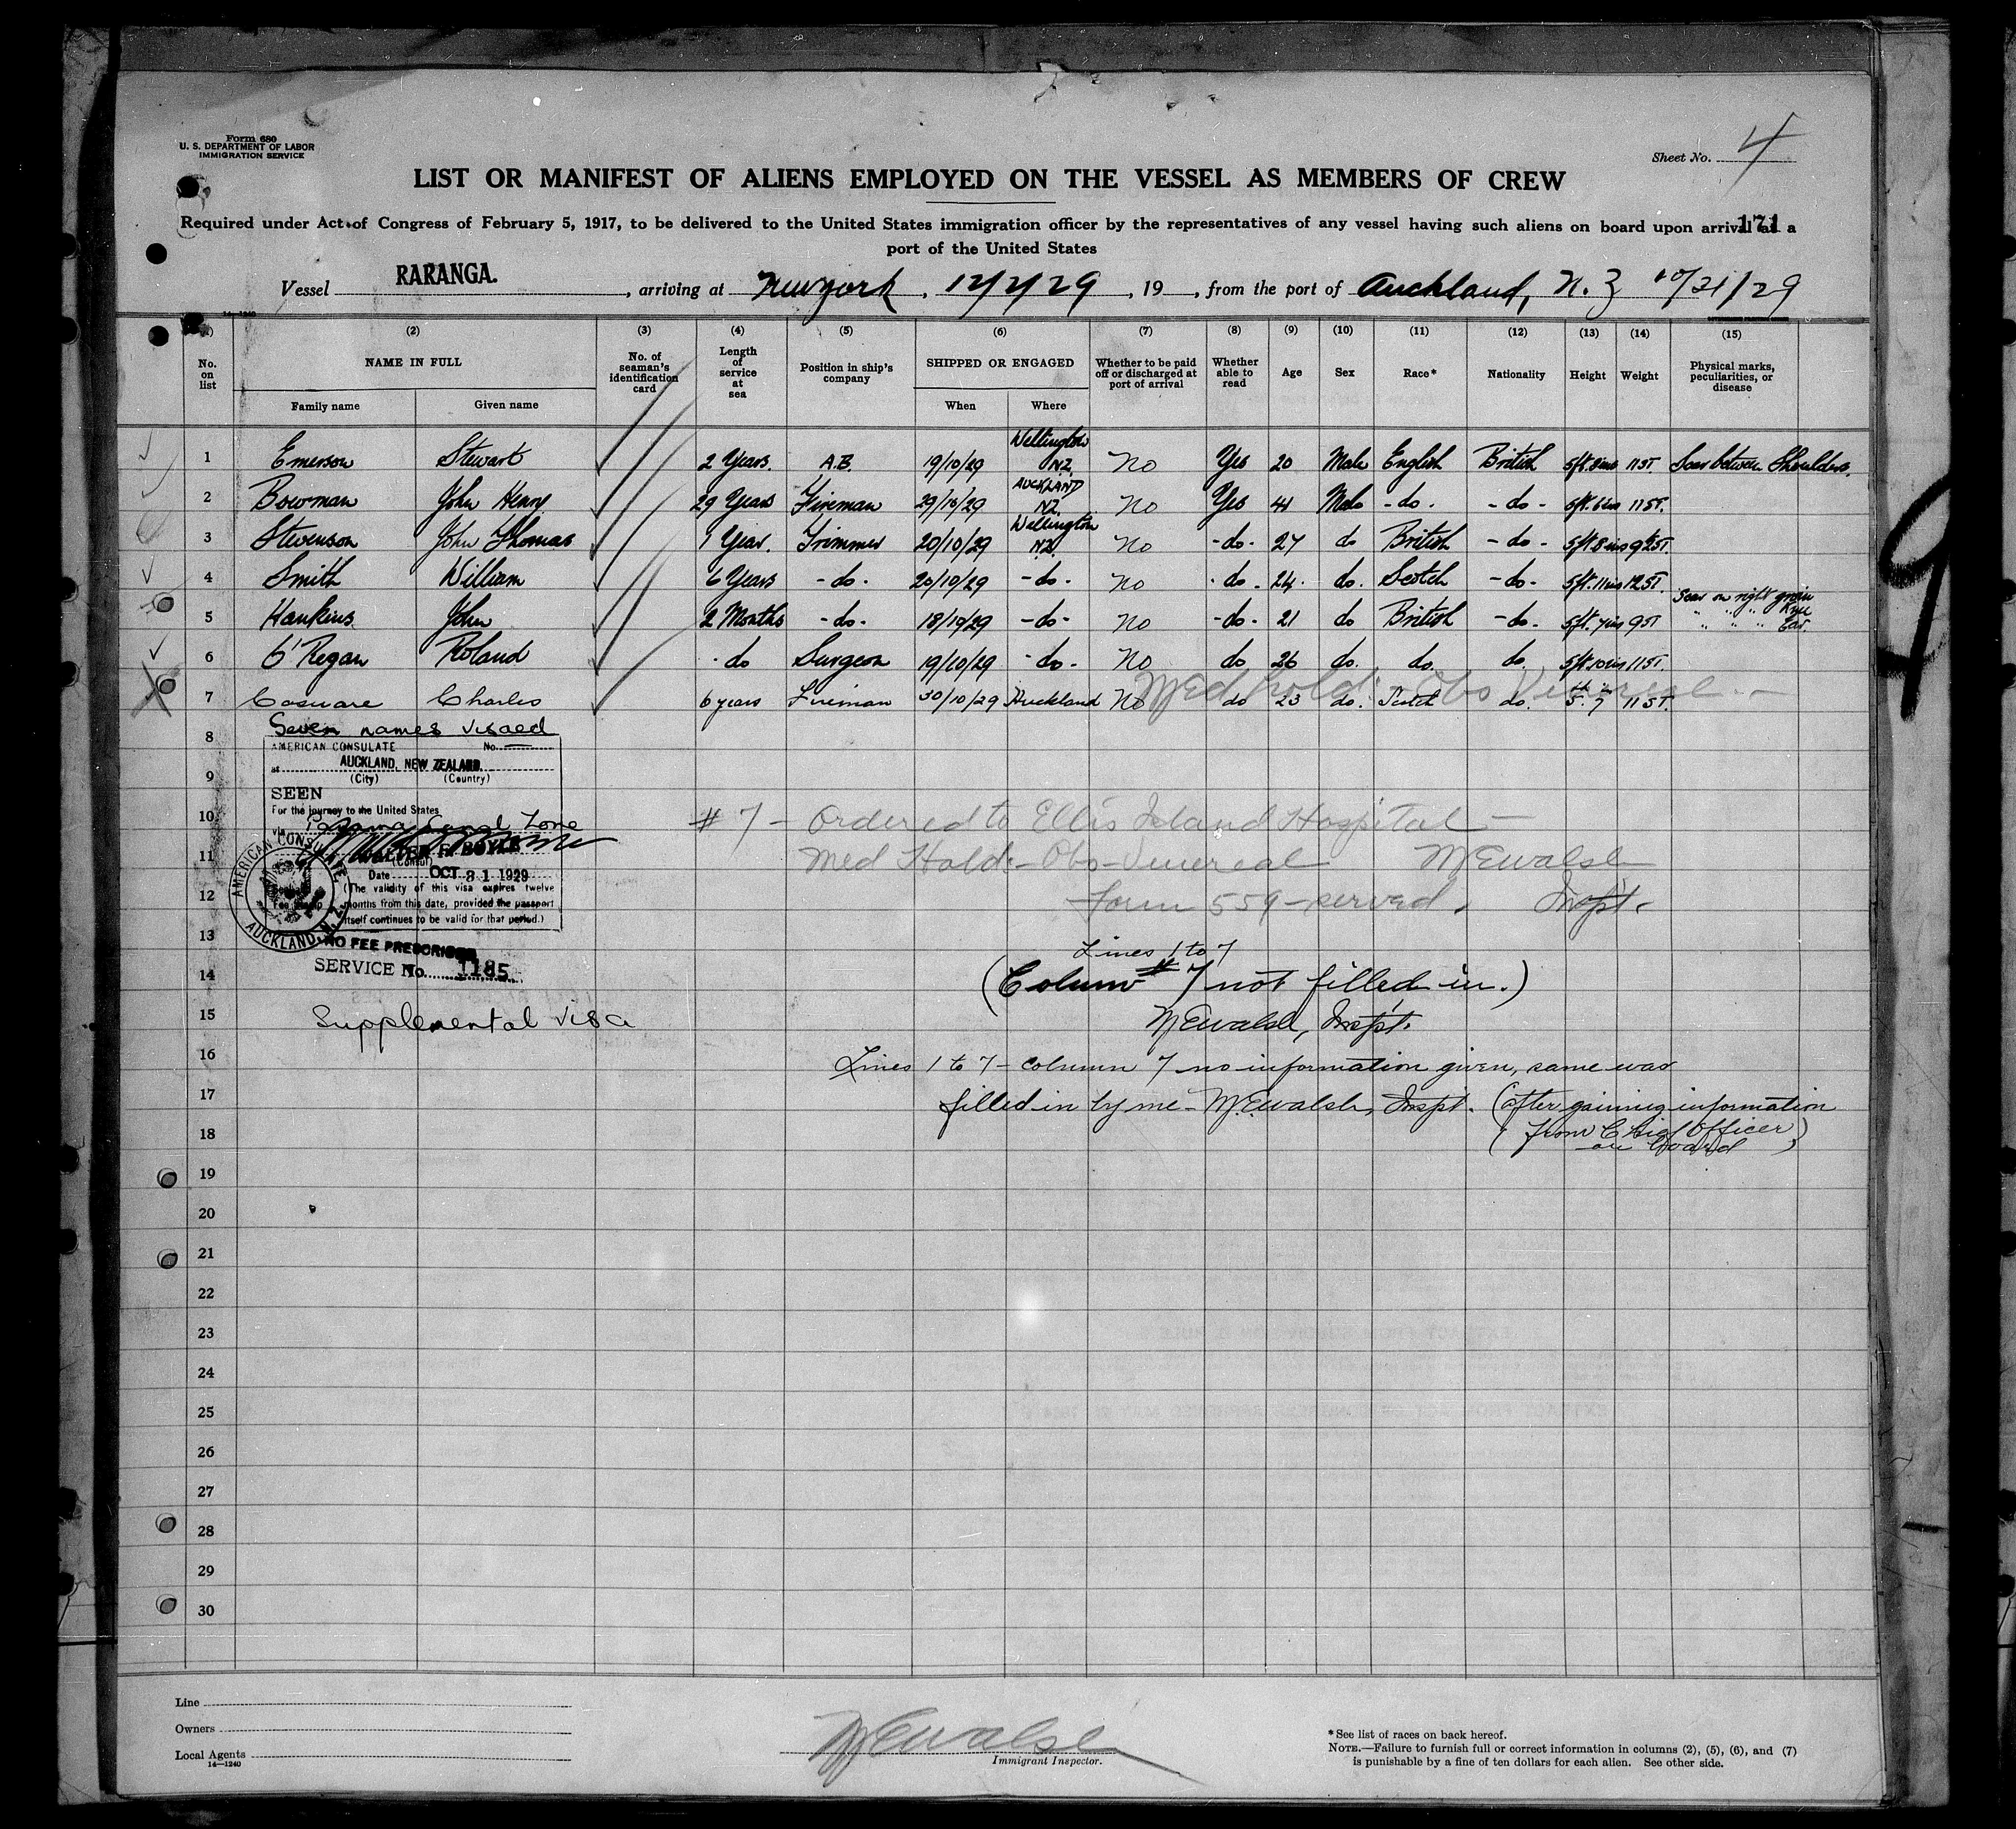 Form 680
U. S. DEPARTMENT OF LABOR
IMMIGRATION SERVICE
Sheet No. 4
LIST OR MANIFEST OF ALIENS EMPLOYED ON THE VESSEL AS MEMBERS OF CREW
Required under Act of Congress of February 5, 1917, to be delivered to the United States immigration officer by the representatives of any vessel having such aliens on board upon arrival at a
171
port of the United States
Vessel RARANGA. , arriving at New York , 12/2/29 , 19 , from the port of Auckland, N. Z 10/31/29
14—1240
(1) (2) (3) (4) (5) (6) (7) (8) (9) (10) (11) (12) (13) (14) (15)
No. on list NAME IN FULL No. of seaman's identification card Length of service at sea Position in ship's company SHIPPED OR ENGAGED Whether to be paid off or discharged at port of arrival Whether able to read Age Sex Race* Nationality Height Weight Physical marks, peculiarities, or disease
Family name Given name When Where
1 Emerson Stewart 2 Years. A.B. 19/10/29 Wellington NZ. No Yes 20 Male English British 5ft.8ins 11ST Scar between Shoulders.
2 Bowman John Henry 29 Years Fireman 29/10/29 AUCKLAND NZ. No Yes 41 Male -do- -do- 5ft.6ins 11ST.
3 Stevenson John Thomas 1 Year. Trimmer 20/10/29 Wellington NZ. No -do- 27 do British -do- 5ft.8ins 9½ST.
4 Smith William 6 Years -do- 20/10/29 -do- No -do- 24. do. Scotch -do- 5ft.11ins 12ST.
5 Hankins John 2 Months -do- 18/10/29 -do- No -do- 21 do British -do- 5ft.7ins 9ST Scar on right groin
" " " Knee
" " " Ear.
6 O'Regan Roland do Surgeon 19/10/29 -do- No do 26 do. do. do. 5ft.10ins 11ST.
7 Casware Charles 6 years Fireman 30/10/29 Auckland No do 23 do. Scotch do. 5.7 11ST.
Med hold: - Obs Venereal -
8 Seven names visaed
AMERICAN CONSULATE No.
9 at AUCKLAND, NEW ZEALAND.
(City) (Country)
SEEN
For the journey to the United States
10 via Panama Canal Zone
# 7 - Ordered to Ellis Island Hospital -
11 WALTER F. BOYLE
(Consul)
Med Hold: - Obs - Venereal MEWalsh
Date OCT 31 1929
12 (The validity of this visa expires twelve
months from this date, provided the passport
itself continues to be valid for that period.)
AMERICAN CONSULATE
AUCKLAND, N.Z.
Form 559 - served. Inspt.
13 NO FEE PRESCRIBED
Lines 1 to 7
14 SERVICE No. 1185
(Column # 7 not filled in.)
15 Supplemental Visa
MEWalsh, Inspt.
16 Lines 1 to 7 - column 7 no information given, same was
17 filled in by me - M.EWalsh, Inspt. (after gaining information
18 (from Chief Officer)
on board
19
20
21
22
23
24
25
26
27
28
29
30
Line
Owners
Local Agents
14—1240
MEWalsh
Immigrant Inspector.
*See list of races on back hereof.
NOTE.—Failure to furnish full or correct information in columns (2), (5), (6), and (7)
is punishable by a fine of ten dollars for each alien. See other side.